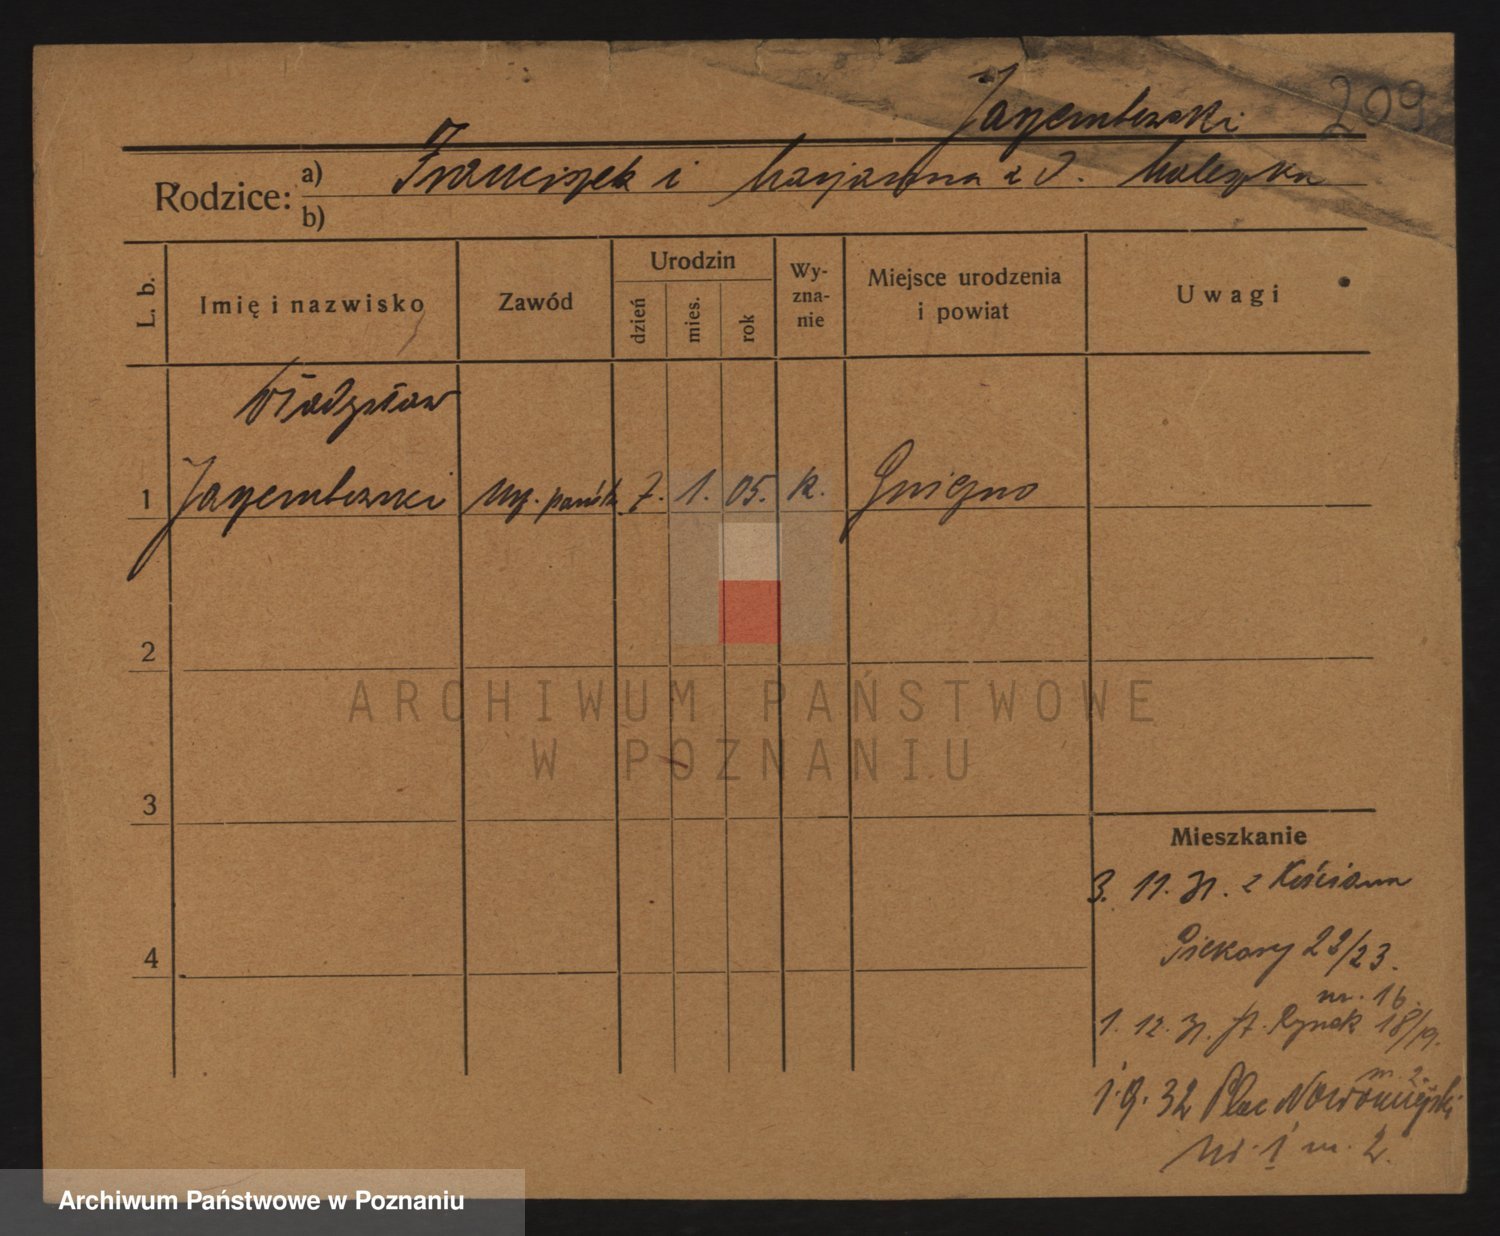 209
Jagembowski
Rodzice: a) Franciszek i Marjanna z d. Maleszka
b)
L. b.
Imię i nazwisko
Zawód
Urodzin
dzień
mies.
rok
Wy-
zna-
nie
Miejsce urodzenia
i powiat
Uwagi
Władysław
1
7. 1. 05. k. Gniezno
2
3
4
Mieszkanie
3. 11. 31. z Kościana
Piekary 22/23.
m. 16.
1. 12. 31. St. Rynek 18/19.
m. 2.
1. 9. 32 Plac Nowomiejski
Nr. 1 m. 2.
ARCHIWUM PAŃSTWOWE
W POZNANIU
Archiwum Państwowe w Poznaniu